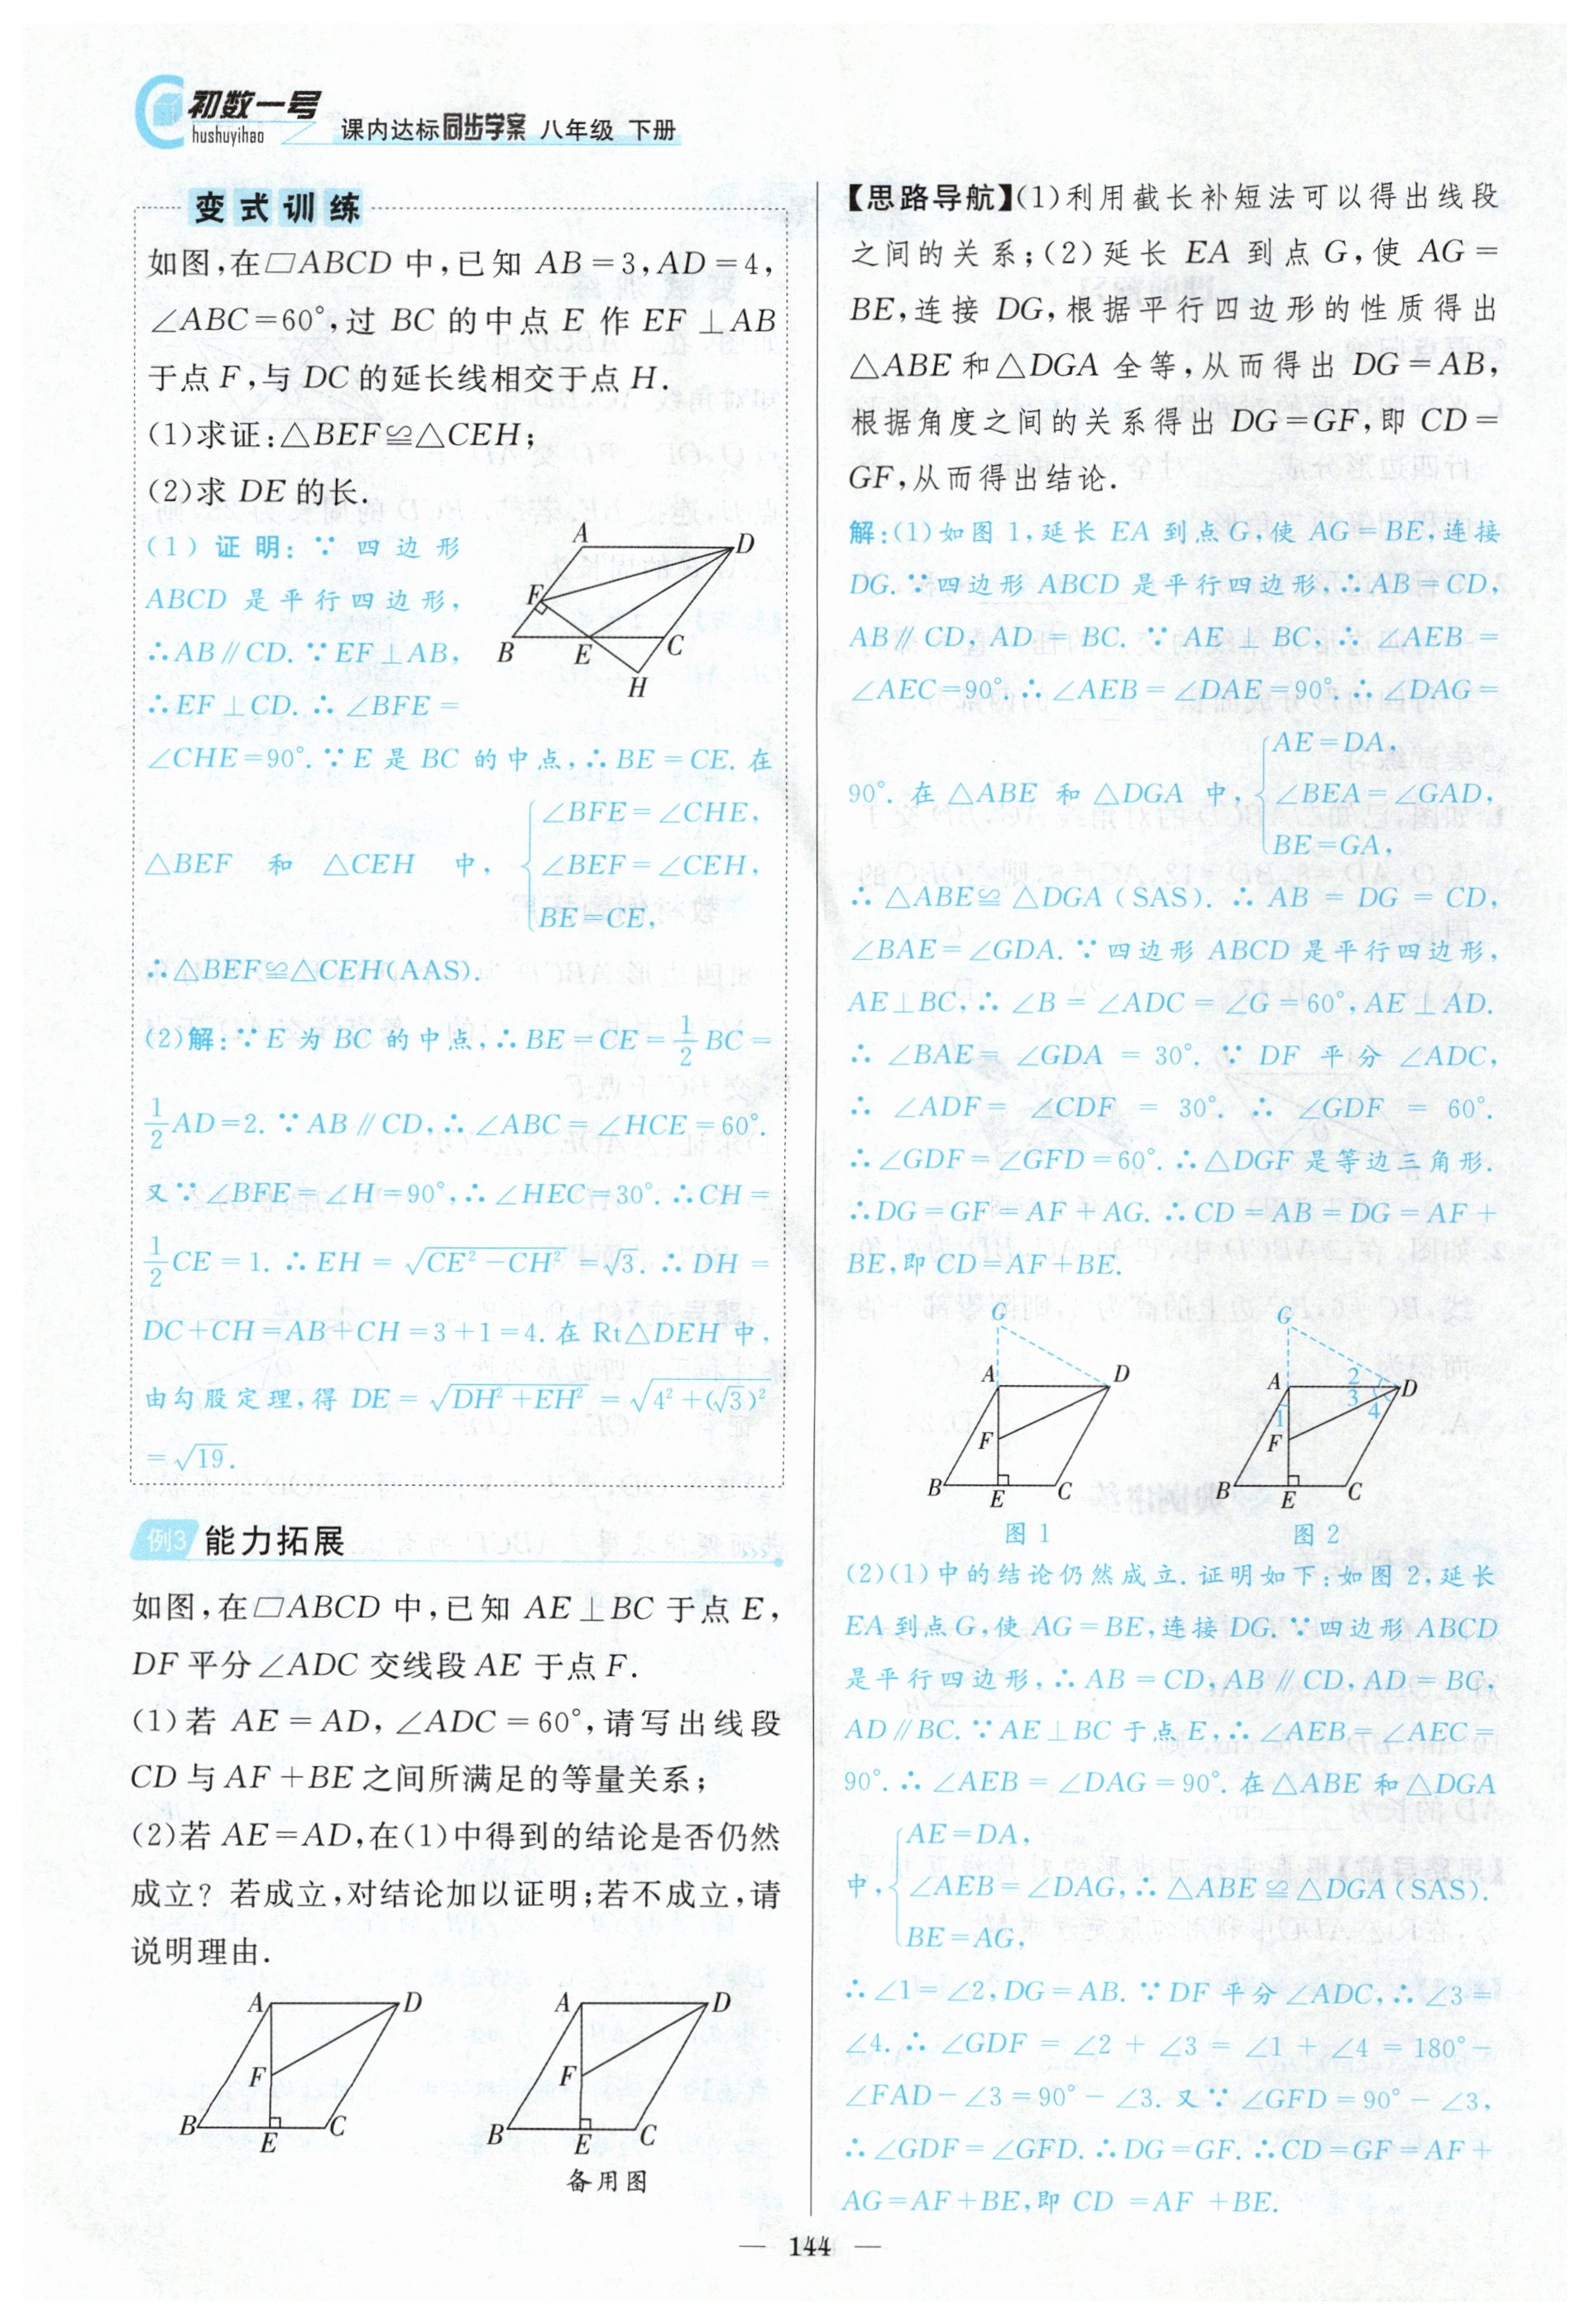 初数一号
hushuyihao
课内达标同步学案 八年级 下册
变式训练
如图,在▱ABCD 中,已知 AB=3,AD=4,
∠ABC=60°,过 BC 的中点 E 作 EF⊥AB
于点 F,与 DC 的延长线相交于点 H.
(1)求证:△BEF≌△CEH;
(2)求 DE 的长.
(1)证明:∵四边形
ABCD 是平行四边形,
∴AB∥CD.∵EF⊥AB,
∴EF⊥CD.∴∠BFE=
A
D
F
B
E
C
H
∠CHE=90°.∵E 是 BC 的中点,∴BE=CE.在
△BEF 和 △CEH 中,
∠BFE=∠CHE,
∠BEF=∠CEH,
BE=CE,
∴△BEF≌△CEH(AAS).
(2)解:∵E 为 BC 的中点,∴BE=CE=1/2 BC=
1/2 AD=2.∵AB∥CD,∴∠ABC=∠HCE=60°.
又∵∠BFE=∠H=90°,∴∠HEC=30°.∴CH=
1/2 CE=1.∴EH=√(CE²-CH²)=√3.∴DH=
DC+CH=AB+CH=3+1=4.在 Rt△DEH 中,
由勾股定理,得 DE=√(DH²+EH²)=√(4²+(√3)²)
=√19.
例3 能力拓展
如图,在▱ABCD 中,已知 AE⊥BC 于点 E,
DF 平分∠ADC 交线段 AE 于点 F.
(1)若 AE=AD,∠ADC=60°,请写出线段
CD 与 AF+BE 之间所满足的等量关系;
(2)若 AE=AD,在(1)中得到的结论是否仍然
成立?若成立,对结论加以证明;若不成立,请
说明理由.
A
D
F
B
E
C
A
D
F
B
E
C
备用图
【思路导航】(1)利用截长补短法可以得出线段
之间的关系;(2)延长 EA 到点 G,使 AG=
BE,连接 DG,根据平行四边形的性质得出
△ABE 和△DGA 全等,从而得出 DG=AB,
根据角度之间的关系得出 DG=GF,即 CD=
GF,从而得出结论.
解:(1)如图 1,延长 EA 到点 G,使 AG=BE,连接
DG.∵四边形 ABCD 是平行四边形,∴AB=CD,
AB∥CD,AD=BC.∵AE⊥BC,∴∠AEB=
∠AEC=90°.∴∠AEB=∠DAE=90°.∴∠DAG=
90°.在△ABE 和△DGA 中,
AE=DA,
∠BEA=∠GAD,
BE=GA,
∴△ABE≌△DGA(SAS).∴AB=DG=CD,
∠BAE=∠GDA.∵四边形 ABCD 是平行四边形,
AE⊥BC,∴∠B=∠ADC=∠G=60°,AE⊥AD.
∴∠BAE=∠GDA=30°.∵DF 平分∠ADC,
∴∠ADF=∠CDF=30°.∴∠GDF=60°.
∴∠GDF=∠GFD=60°.∴△DGF 是等边三角形.
∴DG=GF=AF+AG.∴CD=AB=DG=AF+
BE,即 CD=AF+BE.
G
A
D
F
B
E
C
图 1
G
A
D
2
3
4
1
F
B
E
C
图 2
(2)(1)中的结论仍然成立.证明如下:如图 2,延长
EA 到点 G,使 AG=BE,连接 DG.∵四边形 ABCD
是平行四边形,∴AB=CD,AB∥CD,AD=BC,
AD∥BC.∵AE⊥BC 于点 E,∴∠AEB=∠AEC=
90°.∴∠AEB=∠DAG=90°.在△ABE 和△DGA
中,
AE=DA,
∠AEB=∠DAG,∴△ABE≌△DGA(SAS).
BE=AG,
∴∠1=∠2,DG=AB.∵DF 平分∠ADC,∴∠3=
∠4.∴∠GDF=∠2+∠3=∠1+∠4=180°-
∠FAD-∠3=90°-∠3.又∵∠GFD=90°-∠3,
∴∠GDF=∠GFD.∴DG=GF.∴CD=GF=AF+
AG=AF+BE,即 CD=AF+BE.
— 144 —